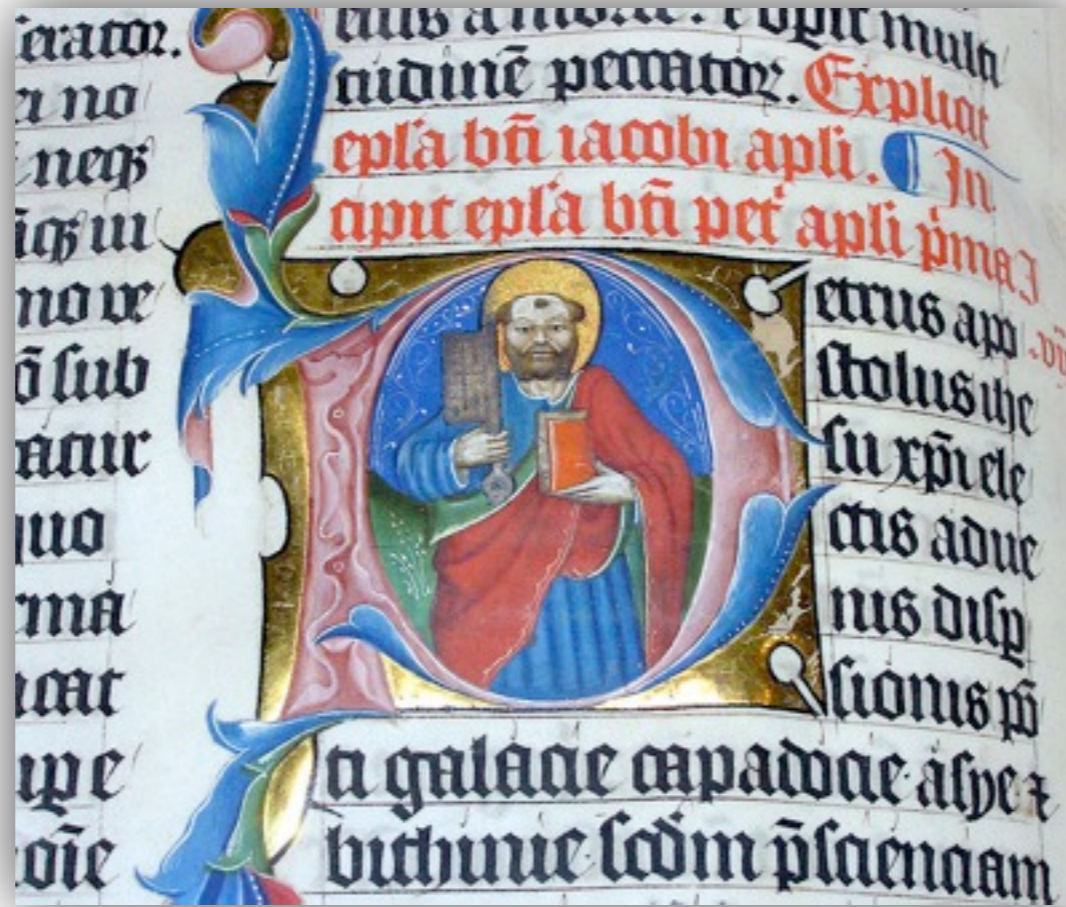 erator.
a no
neqꝫ
iqꝫ in
mo ve
ō sub
catur
quo
rma
icat
ipe
oīe
eius a morte. ⁊ opit multi
tudinē peccatoꝝ. Explicit
epl'a btī iacobi apli. In
cipit epl'a btī pet' apli p'ma
etrus apo
stolus ihe
su xp̄i ele
ctis adue
nis disp
sionis pō
ti galacie capadocie asye ⁊
bithinie scd̄m p̄scienciam